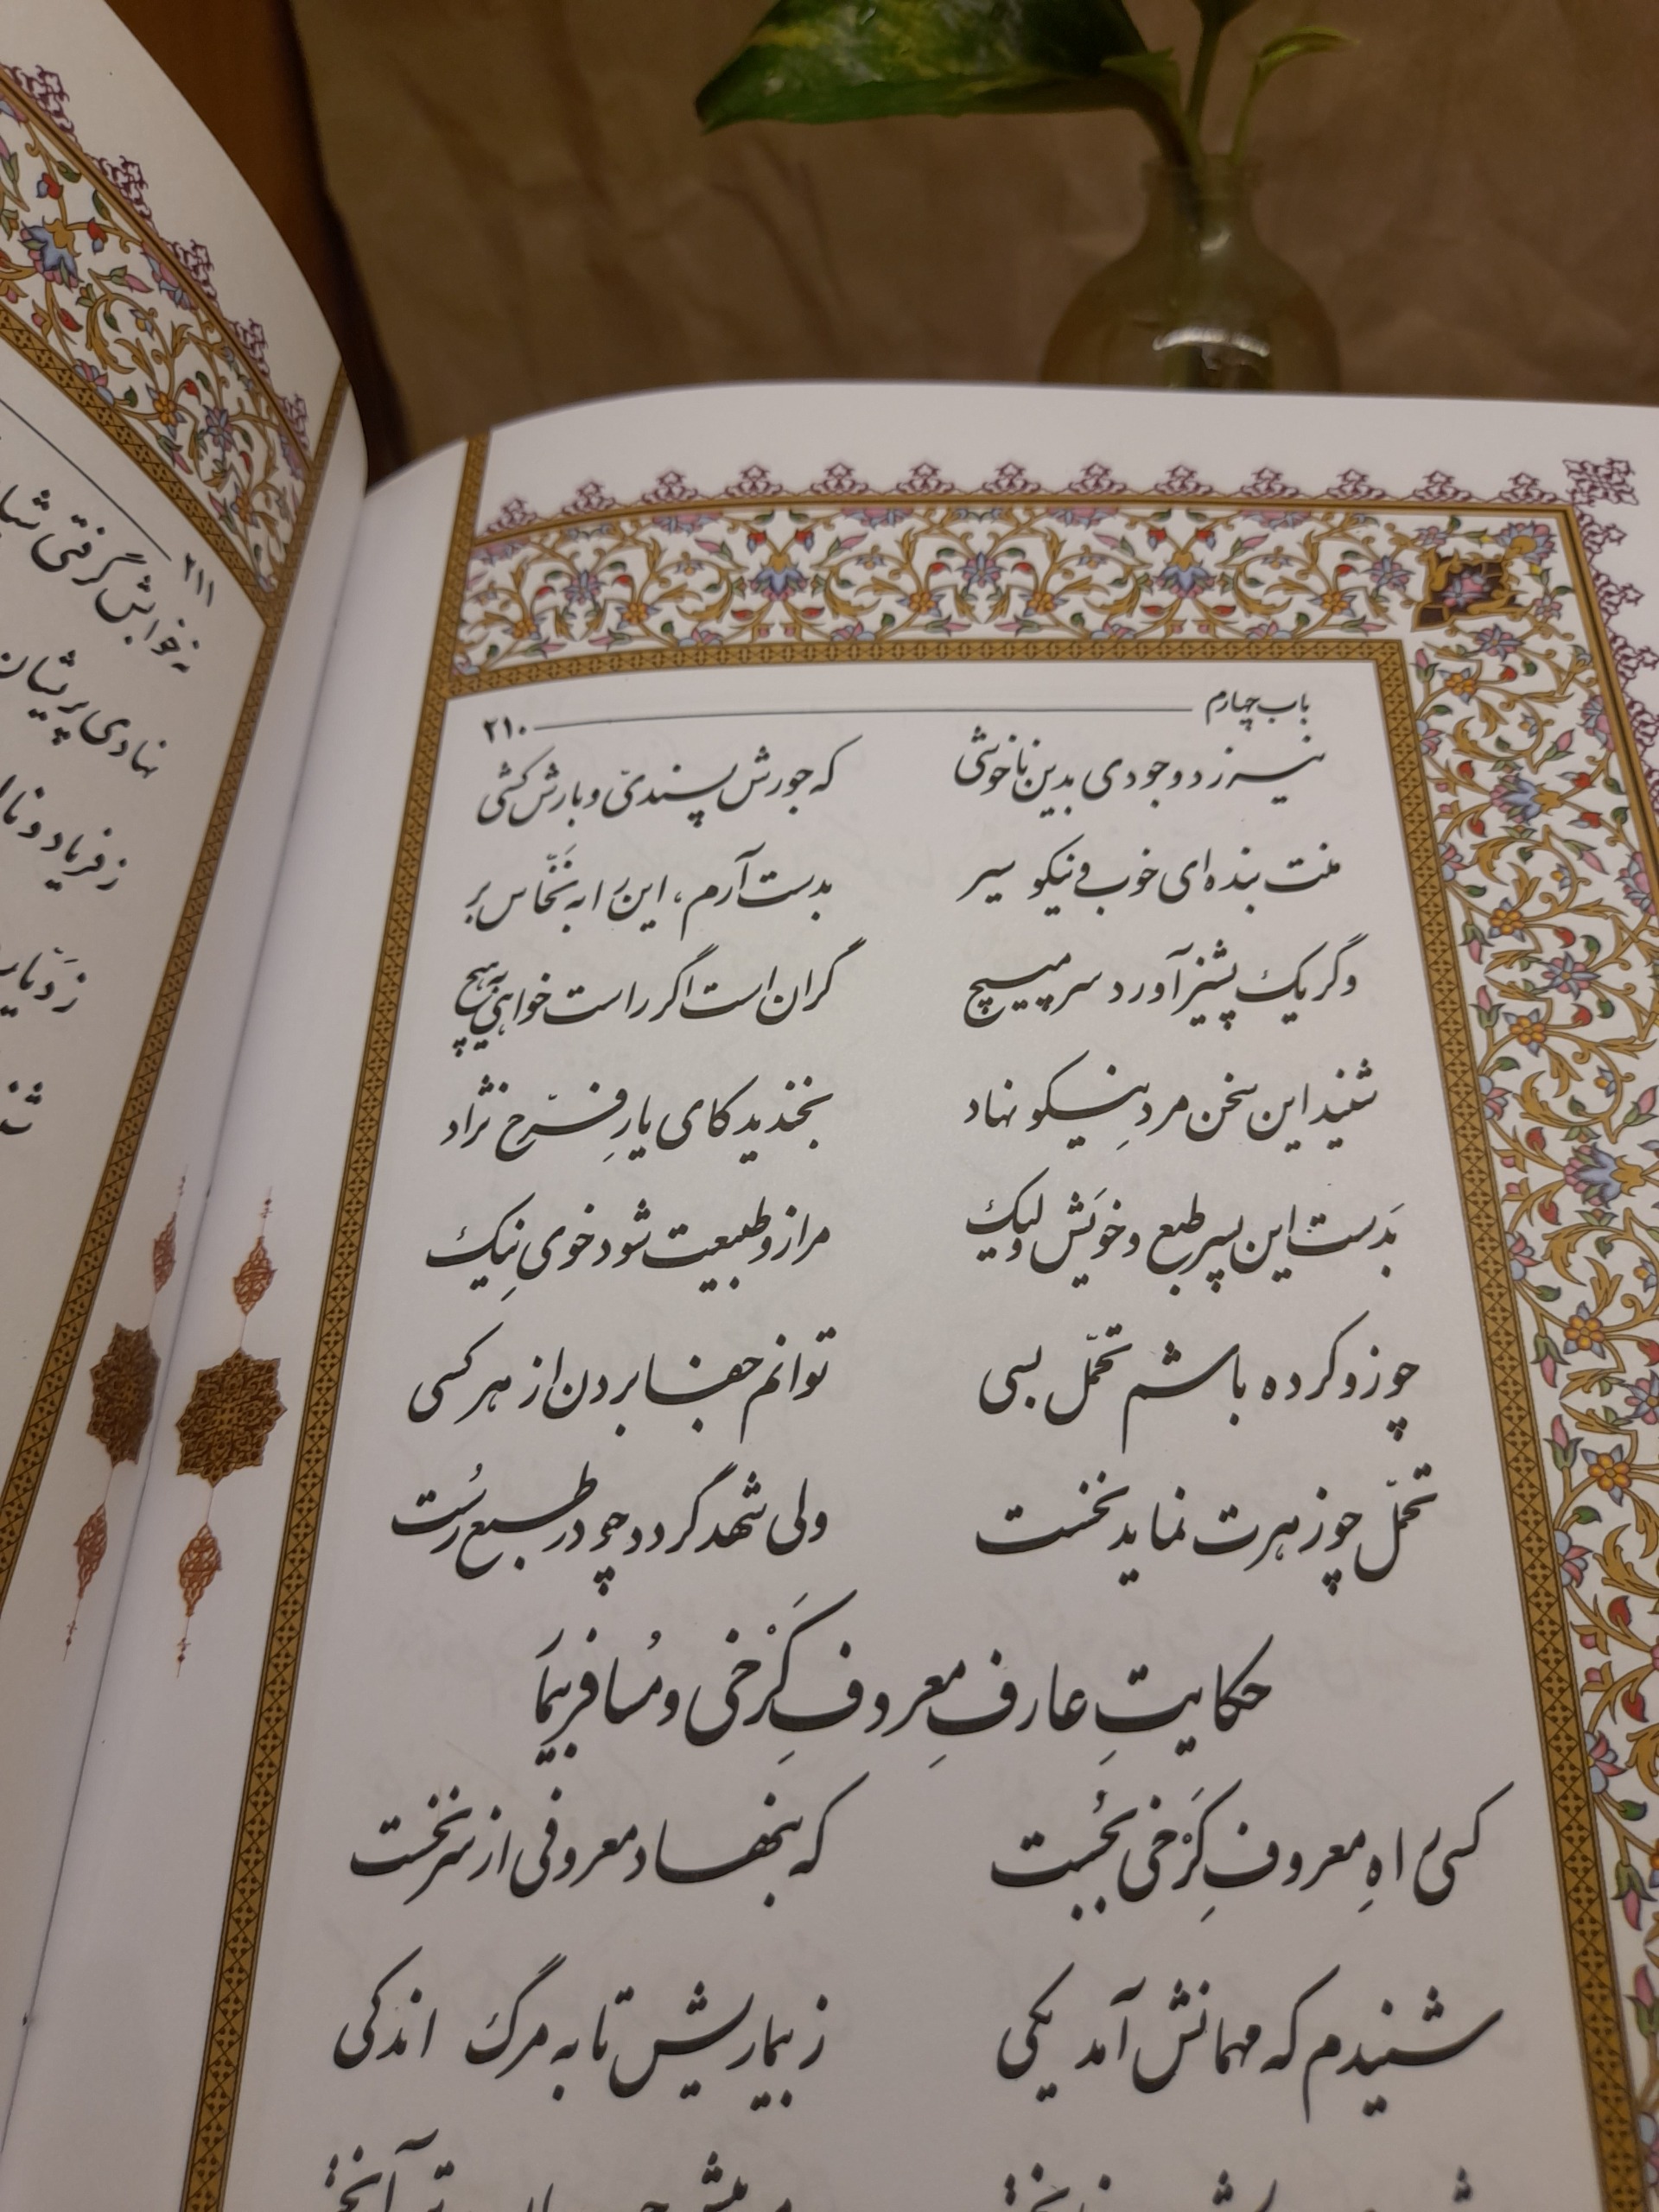 باب چهارم ۲۱۰
نیرزد وجودی بدین ناخوشی که جورش پسندیّ و بارش کشی
منت بنده‌ای خوب و نیکو سیر بدست آرم، این را به نَخّاس بر
وگر یک پشیز آورد سر مپیچ گران است اگر راست خواهی به هیچ
شنید این سخن مردِ نیکو نهاد بخندید کای یارِ فرّخ نژاد
بَدست این پسر طبع و خویَش ولیک مرا زو طبیعت شود خوی نِیک
چو زو کرده باشم تحمّل بسی توانم جفا بردن از هر کسی
تحمّل چو زهرت نماید نخست ولی شهد گردد چو در طبع رُست
حکایتِ عارف معروفِ کَرْخی و مُسافر بیمار
کسی راهِ معروفِ کَرْخی بجُست که بنهاد معروفی از سر نخست
شنیدم که مهمانش آمد یکی ز بیماریش تا به مرگ اندکی
۲۱۱
نه خوابش گرفتی
نهادی پریشان
ز فریاد و